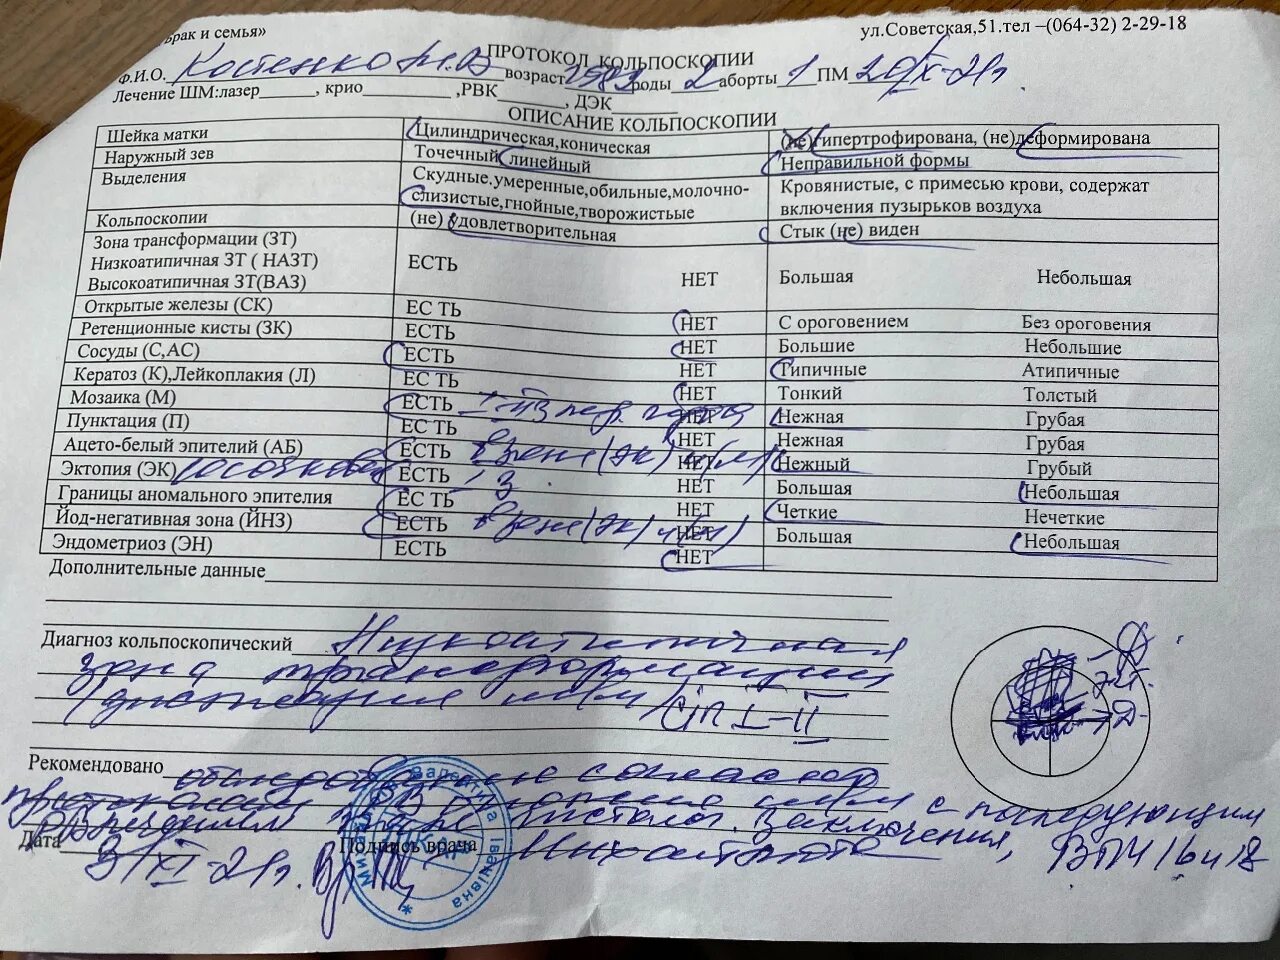 Брак и семья»
ул.Советская,51.тел –(064-32) 2-29-18
ПРОТОКОЛ КОЛЬПОСКОПИИ
Ф.И.О. Костенко возраст 1983 роды 2 аборты 1 ПМ 20/IX-21г.
Лечение ШМ:лазер______, крио________ ,РВК______, ДЭК______
ОПИСАНИЕ КОЛЬПОСКОПИИ
Шейка матки Цилиндрическая,коническая (не)гипертрофирована, (не)деформирована
Наружный зев Точечный линейный Неправильной формы
Выделения Скудные.умеренные,обильные,молочно- Кровянистые, с примесью крови, содержат
слизистые,гнойные,творожистьые включения пузырьков воздуха
Кольпоскопии (не) удовлетворительная Стык (не) виден
Зона трансформации (ЗТ)
Низкоатипичная ЗТ ( НАЗТ) ЕСТЬ НЕТ Большая Небольшая
Высокоатипичная ЗТ(ВАЗ)
Открытые железы (СК) ЕС ТЬ НЕТ С ороговением Без ороговения
Ретенционные кисты (ЗК) ЕСТЬ НЕТ Большие Небольшие
Сосуды (С,АС) ЕСТЬ НЕТ Типичные Атипичные
Кератоз (К),Лейкоплакия (Л) ЕС ТЬ НЕТ Тонкий Толстый
Мозаика (М) ЕСТЬ НЕТ Нежная Грубая
Пунктация (П) ЕС ТЬ НЕТ Нежная Грубая
Ацето-белый эпителий (АБ) ЕСТЬ в зоне (ЭК) ш/м НЕТ Нежный Грубый
Эктопия (ЭК) ЕСТЬ НЕТ Большая Небольшая
Границы аномального эпителия ЕС ТЬ НЕТ Четкие Нечеткие
Йод-негативная зона (ЙНЗ) ЕСТЬ в зоне (ЭК) ш/м НЕТ Большая Небольшая
Эндометриоз (ЭН) ЕСТЬ НЕТ
Дополнительные данные
Диагноз кольпоскопический Низкоатипичная
зона трансформации
ш/м CIN I-II
Рекомендовано обследование согласно
протокола ш/м с последующим
заключения, ВПЧ 16 и 18
Дата 3/XI-21г. Подпись врача